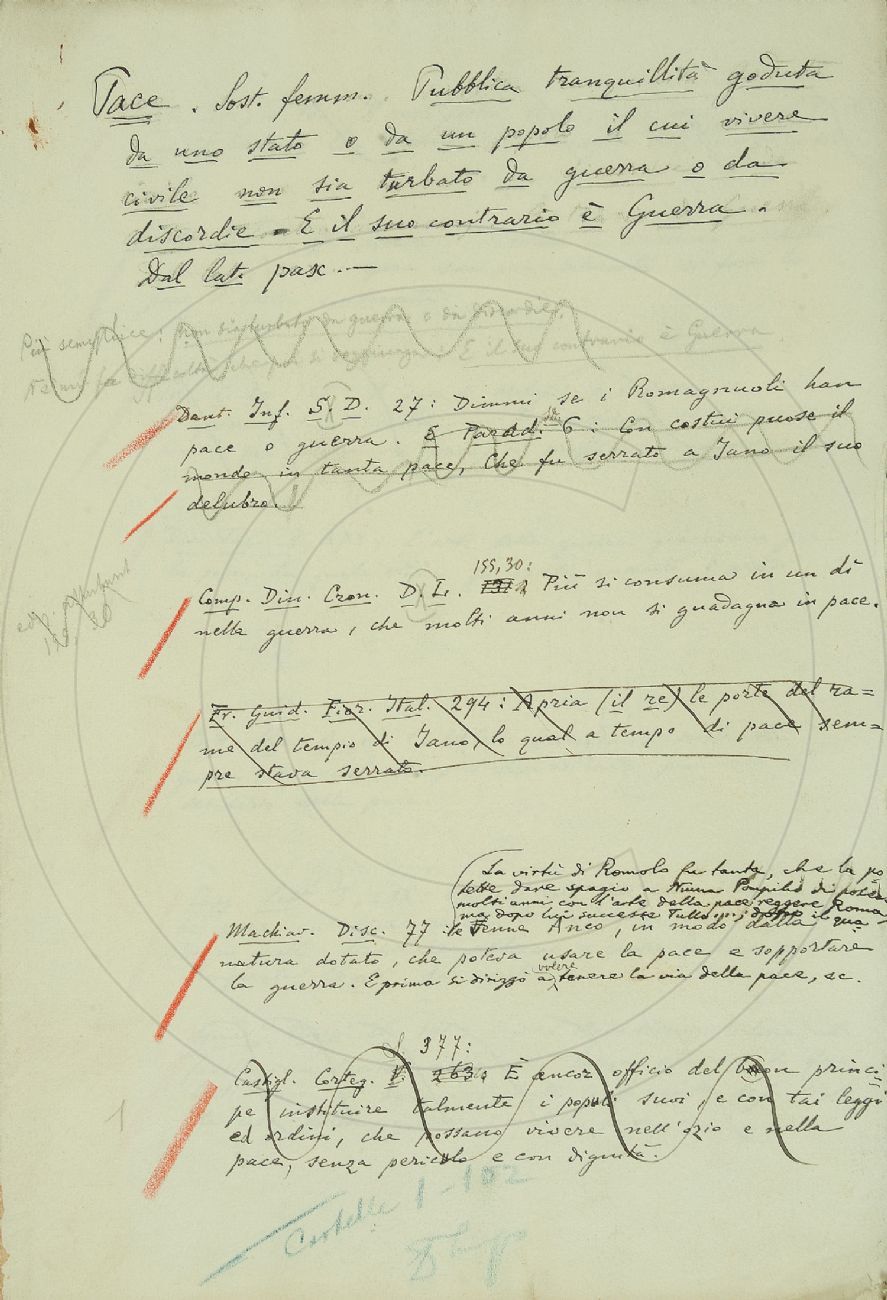 Pace. Sost. femm. Pubblica tranquillità goduta
da uno stato o da un popolo il cui vivere
civile non sia turbato da guerra o da
discordie - E il suo contrario è Guerra.
Dal lat. pax. —
Più semplice: non sia turbato da guerra o da discordie.
E il suo contrario è Guerra
Dant. Inf. S. D. 27: Dimmi se i Romagnuoli han
pace o guerra. E Parad. 6: Con costui puose il
mondo in tanta pace, Che fu serrato a Iano il suo
delubro.
155,30:
Comp. Din. Cron. D. L. Più si consuma in un dì
nella guerra, che molti anni non si guadagna in pace.
Fr. Guid. Fior. Ital. 294: Apria (il re) le porte del ra=
me del tempio di Iano, lo qual a tempo di pace sem=
pre stava serrato.
La virtù di Romolo fu tanta, che la po
tette dare spazio a Numa Pompilio di potere
molti anni con l'arte della pace reggere Roma
ma dopo lui successe Tullo
Machiav. Disc. 77: Venne Anco, in modo dalla
natura dotato, che poteva usare la pace e sopportare
la guerra. E prima si dirizzò a volere tenere la via della pace, ec.
377:
Castigl. Corteg. 263: È ancor officio del buon princi=
pe instituire talmente i popoli suoi, e con tai leggi
ed ordini, che possano vivere nell'ozio e nella
pace, senza pericolo e con dignità.
1-102